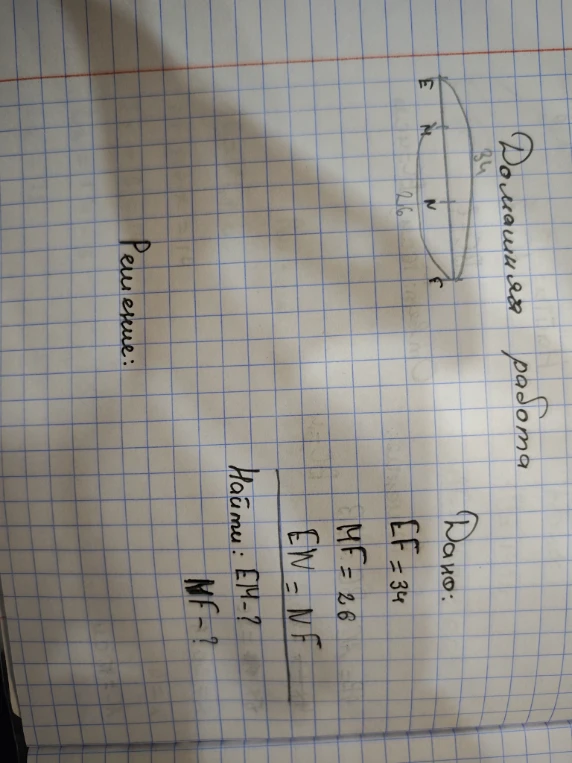 Домашняя работа
34
E M N F
26
Дано:
EF = 34
MF = 26
EN = NF
Найти: EM - ?
NF - ?
Решение: